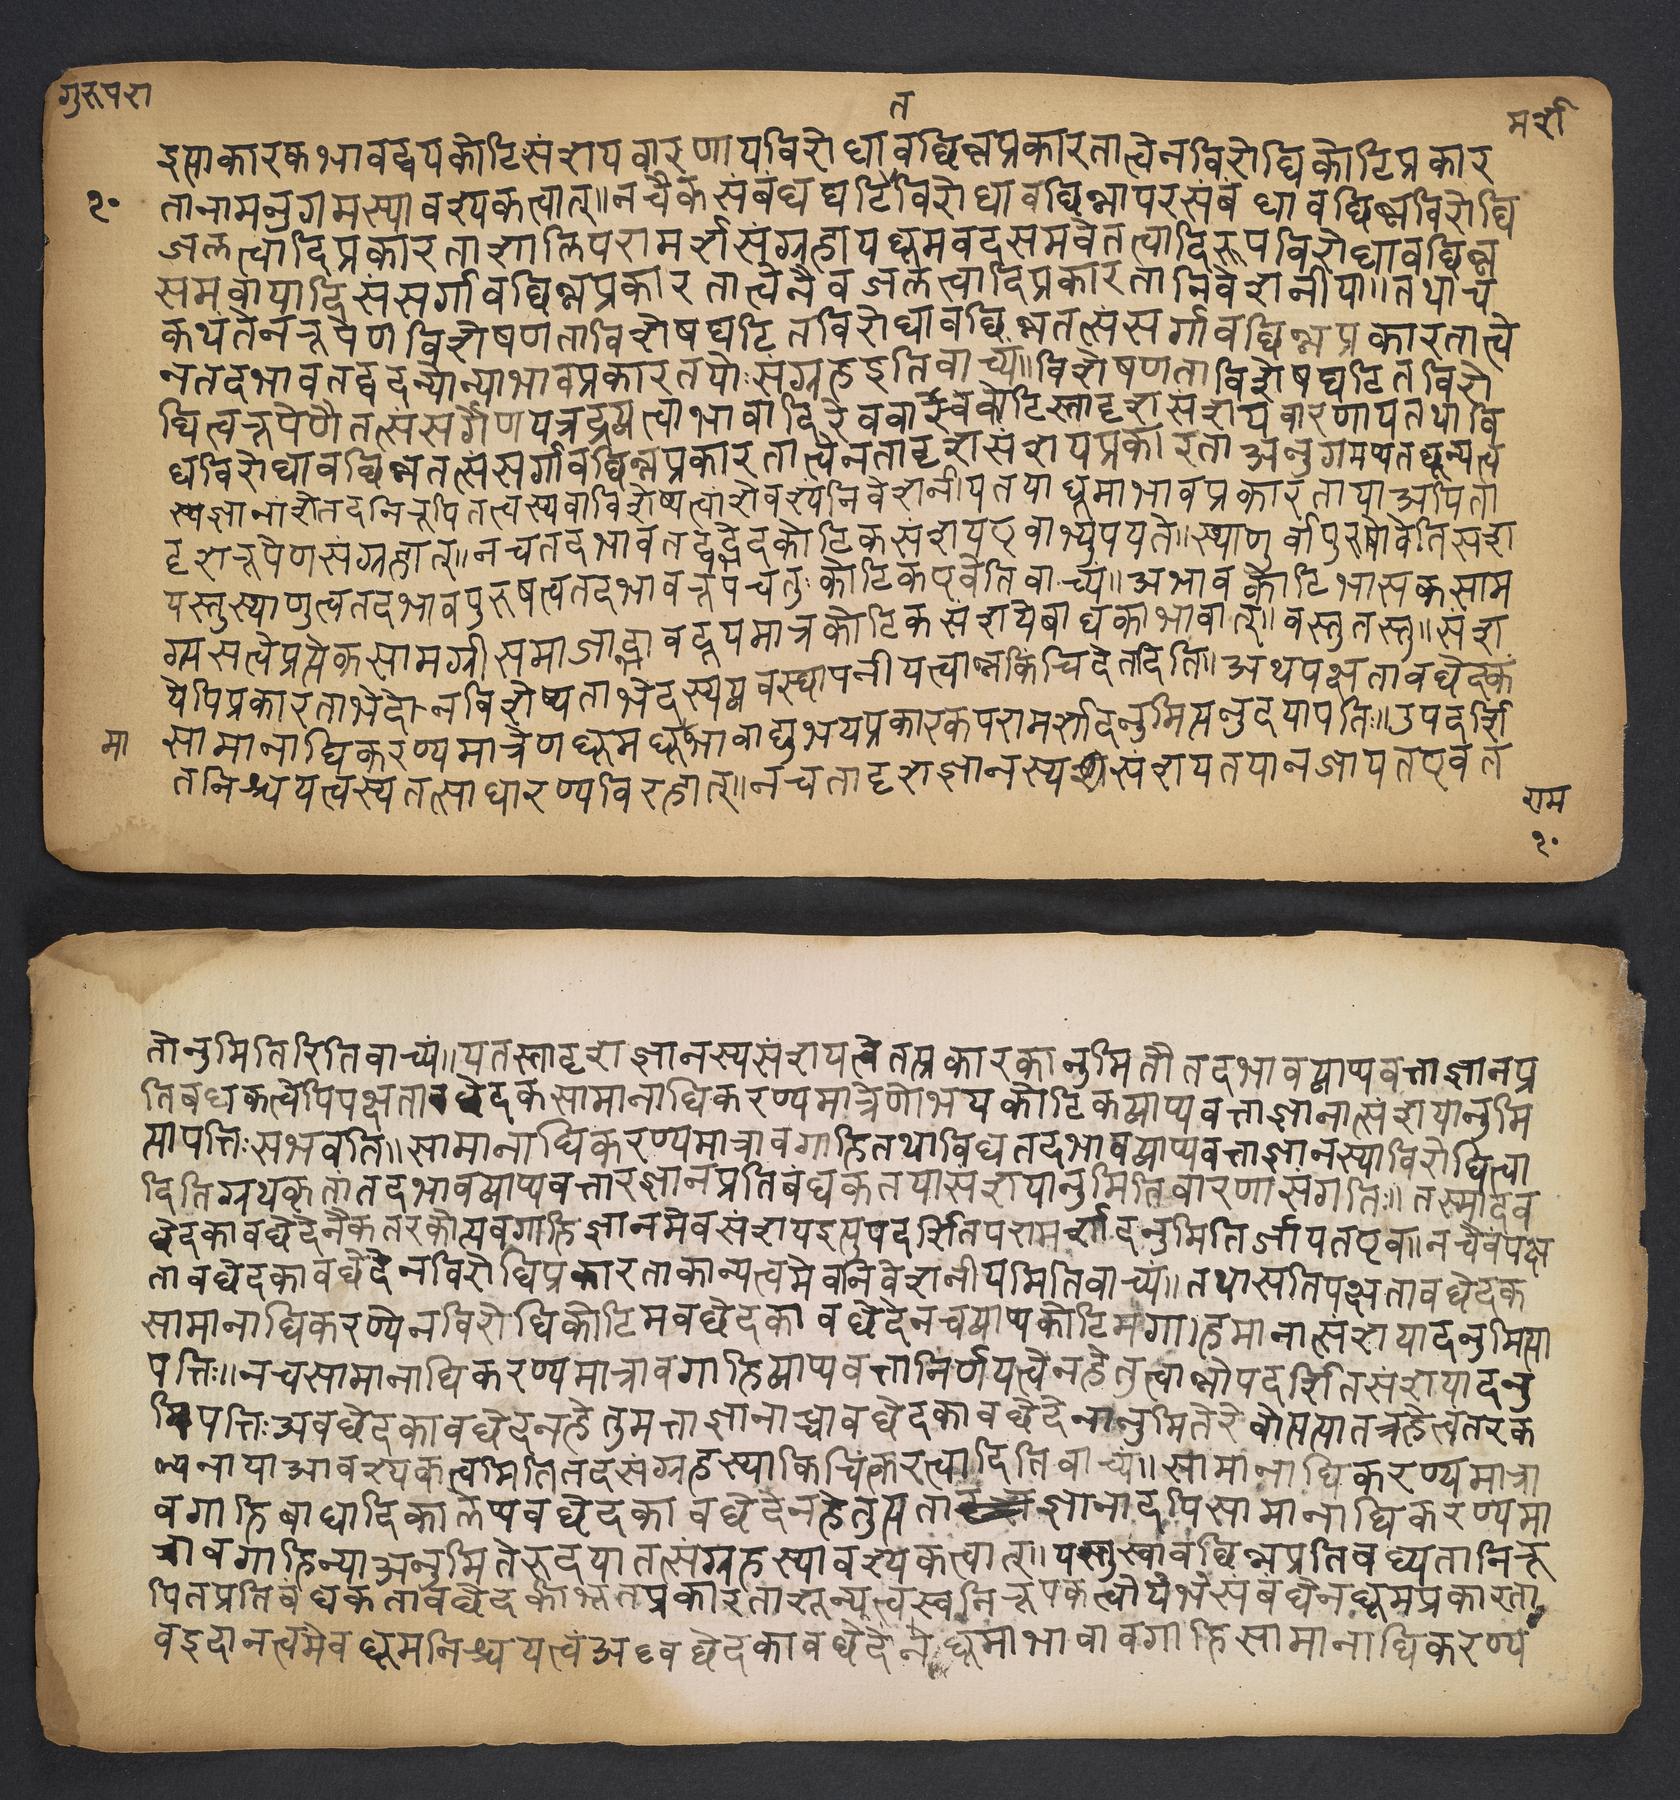 गुरूपरा
मर्शा
त
इत्याकारकभावद्वयकोटिसंशयवारणायविरोधावछिन्नप्रकारतात्वेनविरोधिकोटिप्रकार
२०
तानामनुगमस्यावश्यकत्वात्॥नचैकसंबंधघटिविरोधावछिन्नापरसंबंधावछिन्नविरोधि
जलत्वादिप्रकारताशालिपरामर्शसंग्रहायधूमवदसमवेतत्वादिरूपविरोधावछिन्न
समवायादिसंसर्गावछिन्नप्रकारतात्वेनैवजलत्वादिप्रकारतानिवेशनीया॥तथाच
कथंतेनरूपेणविशेषणताविशेषघटितविरोधावछिन्नतत्संसर्गावछिन्नप्रकारतात्वे
नतदभावतद्वदन्योन्याभावप्रकारतयोःसंग्रहइतिवाच्यं॥विशेषणताविशेषघटितविरो
धित्वरूपेणैतत्संसर्गेणयत्रद्रव्यत्वाभावादिरेववाश्वेकोटिस्तादृशसंशयवारणायतथावि
धविरोधावछिन्नतत्संसर्गावछिन्नप्रकारतात्वेनतादृशसंशयप्रकारताअनुगमय्यतछून्यत्व
स्यज्ञानांशेतदनिरूपितत्वस्यवाविशेष्यत्वांशेवश्यंनिवेशनीयतयाधूमाभावप्रकारतायाअपिता
दृशरूपेणसंग्रहात्॥नचतदभावतद्वद्भेदकोटिकसंशयएवाभ्युपेयते॥स्थाणुर्वापुरुषोवेतिसंश
यस्तुस्थाणुत्वतदभावपुरूषत्वतदभावरूपचतुःकोटिकएवेतिवाच्यं॥अभावकोटिभासकसाम
ग्र्यसत्वेप्रत्येकसामग्रीसमाजाद्भावद्वयमात्रकोटिकसंशयेबाधकाभावात्॥वस्तुतस्तु॥संश
येपिप्रकारताभेदेनविशेष्यताभेदस्यव्यवस्थापनीयत्वान्नकिंचिदेतदिति॥अथपक्षतावछेदक
मा
सामानाधिकरण्यमात्रेणधूमधूभावाद्युभयप्रकारकपरामर्शादनुमित्यनुदयापत्तिः॥उपदर्शि
तनिश्चयत्वस्यतत्साधारण्यविरहात्॥नचतादृशज्ञानस्यसंशयतयानजायतएवत
राम
२०
तोनुमितिरितिवाच्यं॥यतस्तादृशज्ञानस्यसंशयत्वेतत्प्रकारकानुमितौतदभावव्याप्यवत्ताज्ञानप्र
तिबंधकत्वेपिपक्षतावछेदकसामानाधिकरण्यमात्रेणोभयकोटिकव्याप्यवत्ताज्ञानात्संशयानुमि
त्यापत्तिःसंभवति॥सामानाधिकरण्यमात्रावगाहितथाविधतदभावव्याप्यवत्ताज्ञानस्याविरोधित्वा
दितिग्रथकृतांतदभावव्याप्यवत्तारज्ञानप्रतिबंधकतयासंशयानुमितिवारणासंगतिः॥तस्मादव
छेदकावछेदेनैकतरकोट्यवगाहिज्ञानमेवसंशयइत्युपदर्शितपरामर्शादनुमितिर्जायतएव॥नचैवंपक्ष
तावछेदकावछेदेनविरोधिप्रकारताकान्यत्वमेवनिवेशनीयमितिवाच्यं॥तथासतिपक्षतावछेदक
सामानाधिकरण्येनविरोधिकोटिमवछेदकावछेदेनचव्याप्यकोटिमगाहमानात्संशयादनुमित्या
पत्तिः॥नचसामानाधिकरण्यमात्रावगाहिव्याप्यवत्तानिर्णयत्वेनहेतुत्वान्नोपदर्शितसंशयादनु
मिपत्तिःअवछेदकावछेदेनहेतुमत्ताज्ञानाच्चावछेदकावछेदेनानुमितेरेवोत्पत्यातत्रहेत्वंतरक
ल्पनायाआवश्यकत्वमितितदसंग्रहस्याकिंचित्करत्वादितिवाच्यं॥सामानाधिकरण्यमात्रा
वगाहिबाधादिकालेप्यवछेदकावछेदेनहेतुमत्ताज्ञानादपिसामानाधिकरण्यमा
त्रावगाहिन्याअनुमितेरुदयातत्संग्रहस्यावश्यकत्वात्॥यस्तुस्वावछिन्नप्रतिवध्यतानिरू
पितप्रतिबंधकतावछेदकीभूतप्रकारताशून्यत्वस्वनिरूपकत्वोयभसंबंधेनधूमप्रकारता
वइदानत्वमेवधूमनिश्चयत्वंअवछेदकावछेदेनधूमाभावावगाहिसामानाधिकरण्यं